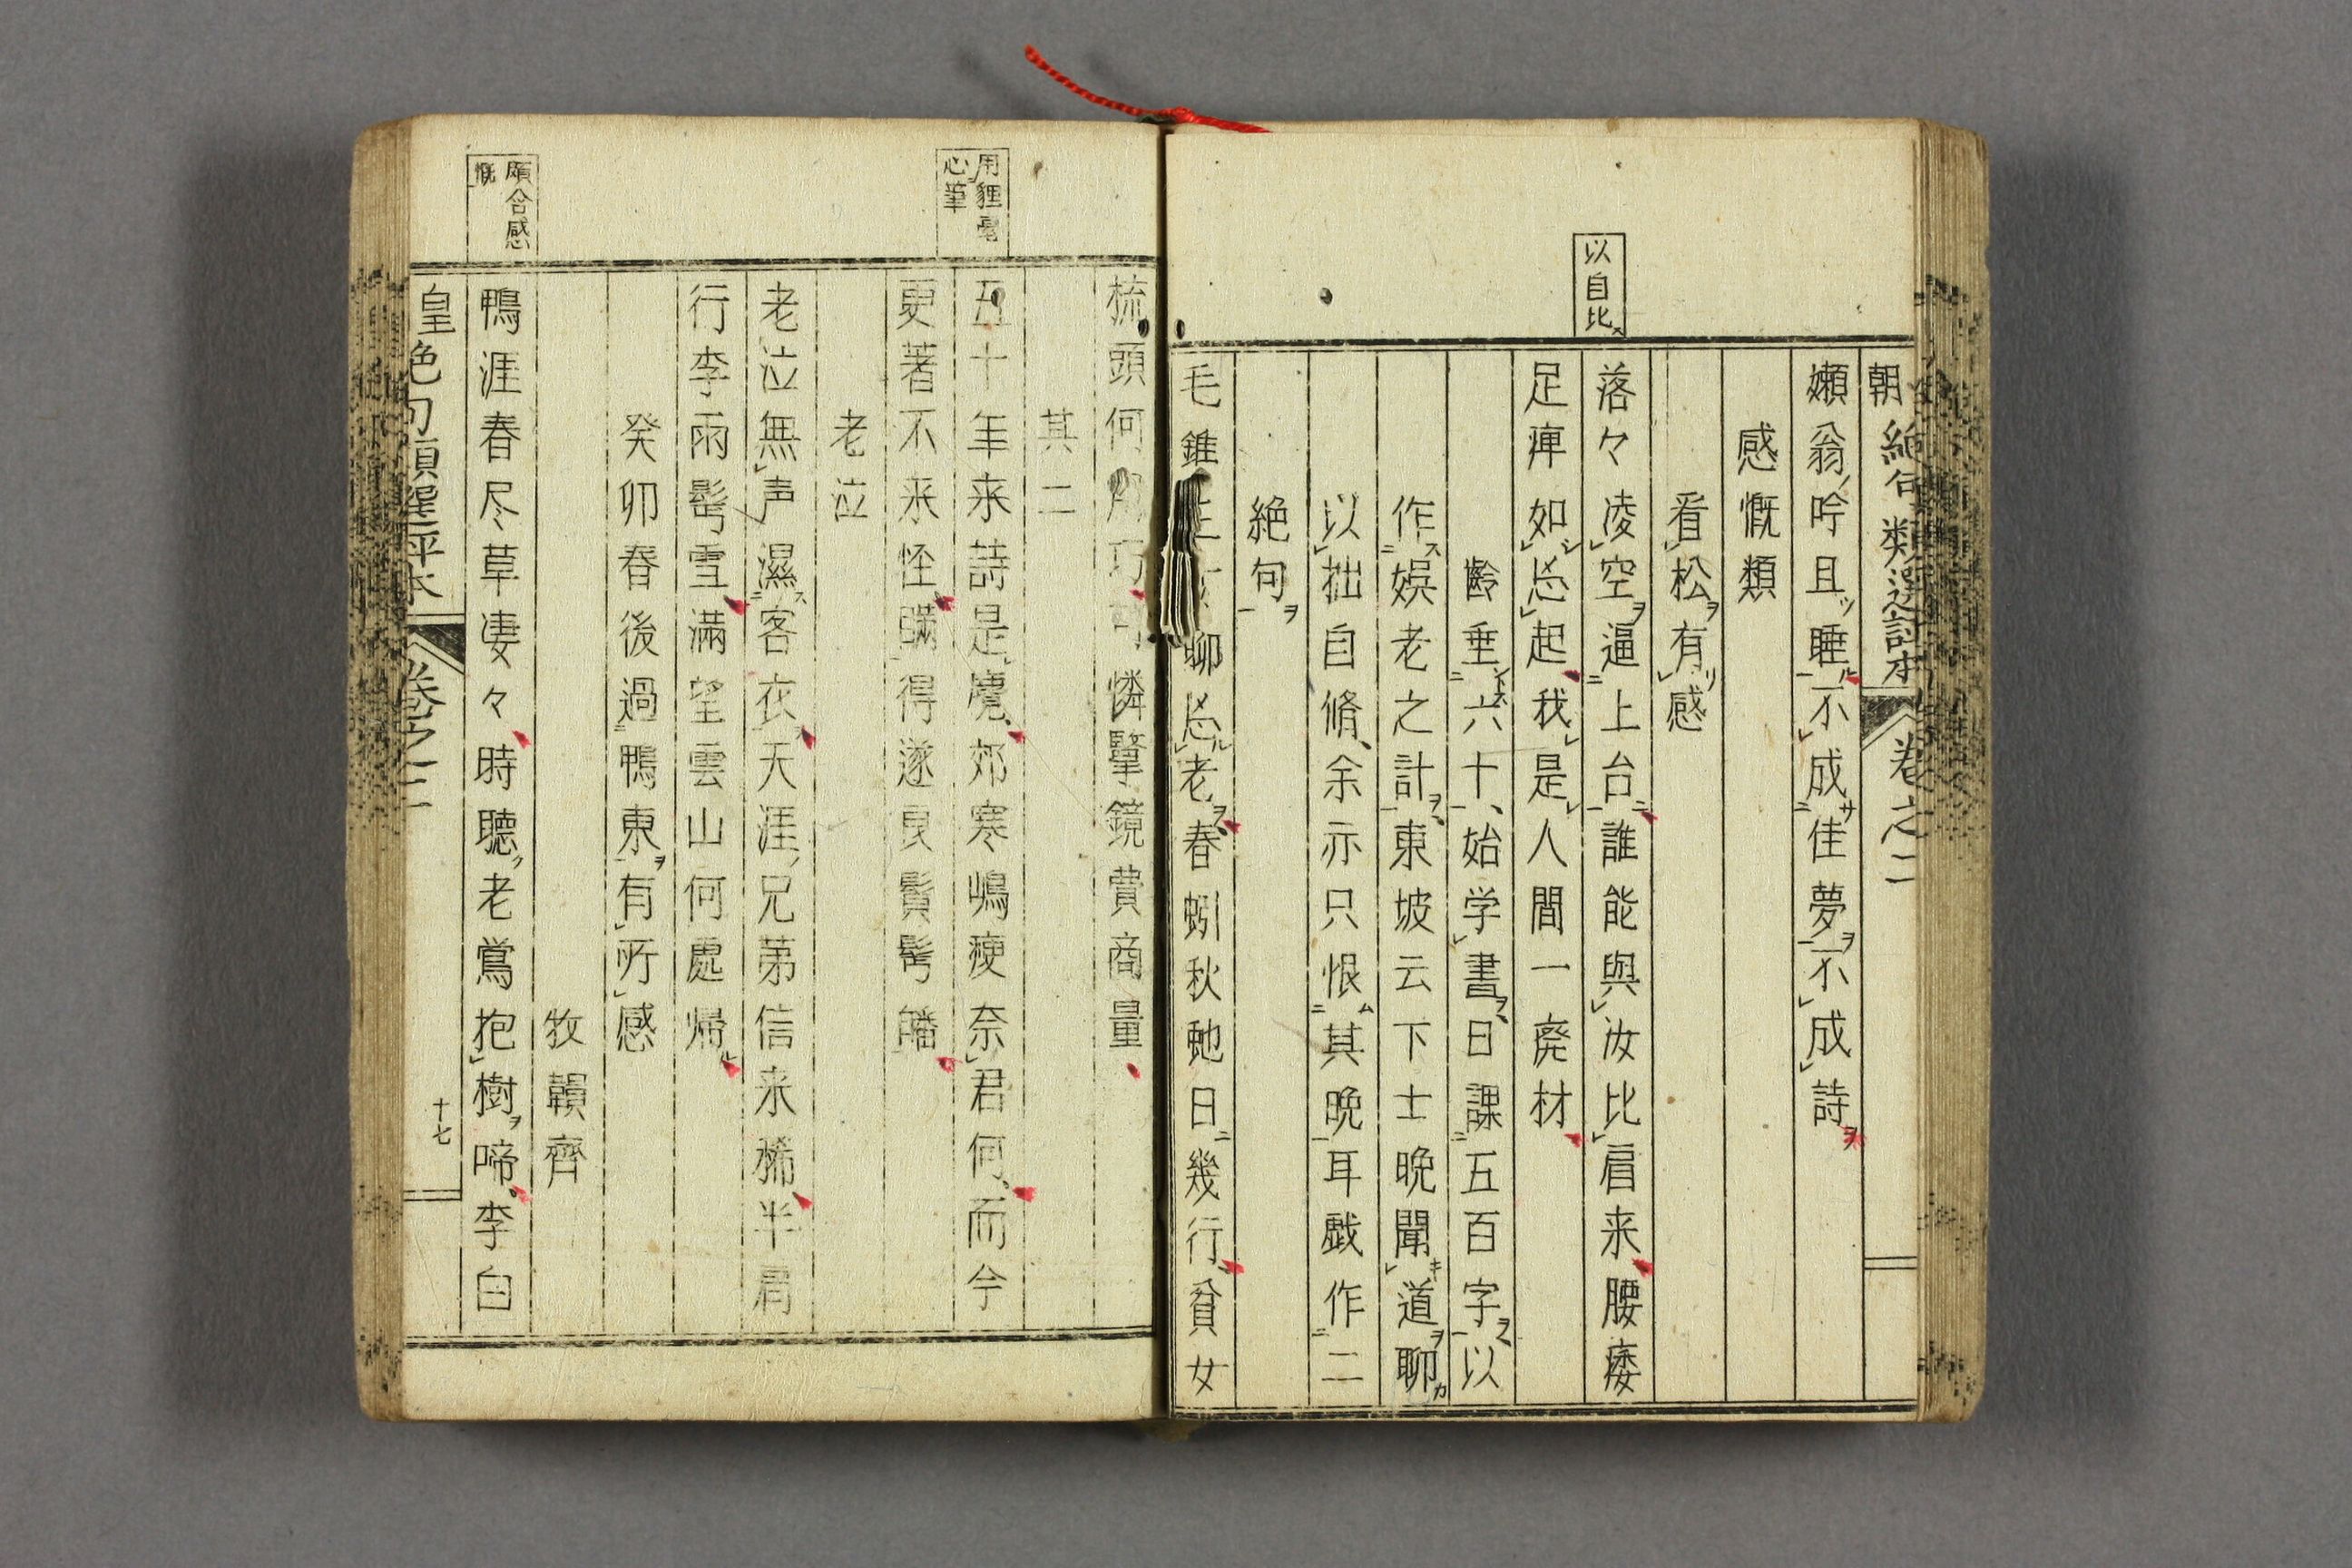 以自比
朝絶句類選評本 卷之二
嬾翁吟且睡不成佳夢不成詩
感慨類
看松有感
落々凌空逼上台誰能與汝比肩来腰痿
足痺如忘起我是人間一廃材
齡垂六十始学書日課五百字以
作娯老之計東坡云下士晩聞道聊
以拙自脩余亦只恨其晩耳戯作二
絶句
毛錐 聊忘老春蚓秋虵日幾行貧女
用貍毫
心筆
頗含感
慨
梳頭何 巧 憐擎鏡費商量
其二
五十年来詩是魔郊寒嶋瘦奈君何而今
更著不来怪彊得遂良鬢髩皤
老泣
老泣無声濕客衣天涯兄弟信来稀半肩
行李雨髩雪滿望雲山何處帰
癸卯春後過鴨東有所感
牧韻齊
鴨涯春尽草凄々時聽老鶯抱樹啼李白
皇絶句類選評本 卷之二 十七